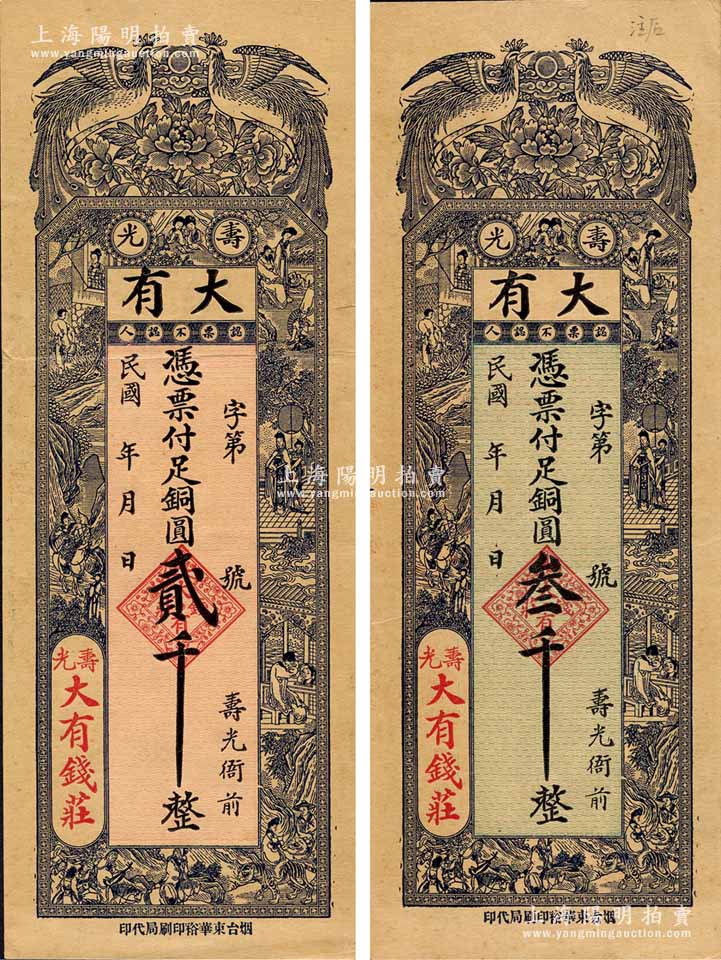 上海陽明拍賣
www.yangmingauction.com
壽光
大有
認票不認人
字第 號
憑票付足銅圓貳千整
民國 年 月 日
壽光衙前
壽光
大有錢莊
有
烟台東華裕印刷局代印
注后
壽光
大有
認票不認人
字第 號
憑票付足銅圓叁千整
民國 年 月 日
壽光衙前
壽光
大有錢莊
有
烟台東華裕印刷局代印
上海陽明拍賣
www.yangmingauction.com
上海陽明拍賣
www.yangmingauction.com